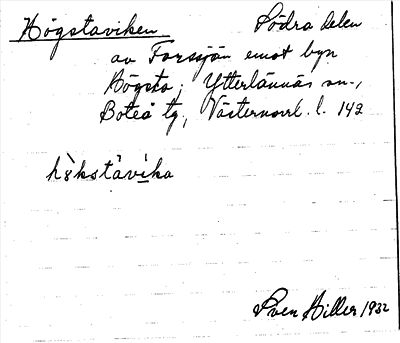 Högstaviken Södra delen
av Forssjön emot byn
Högsta; Ytterlännäs sn.,
Boteå tg, Västernorrl. l. 142
hö̀kstàvíka
Sven Hiller 1932